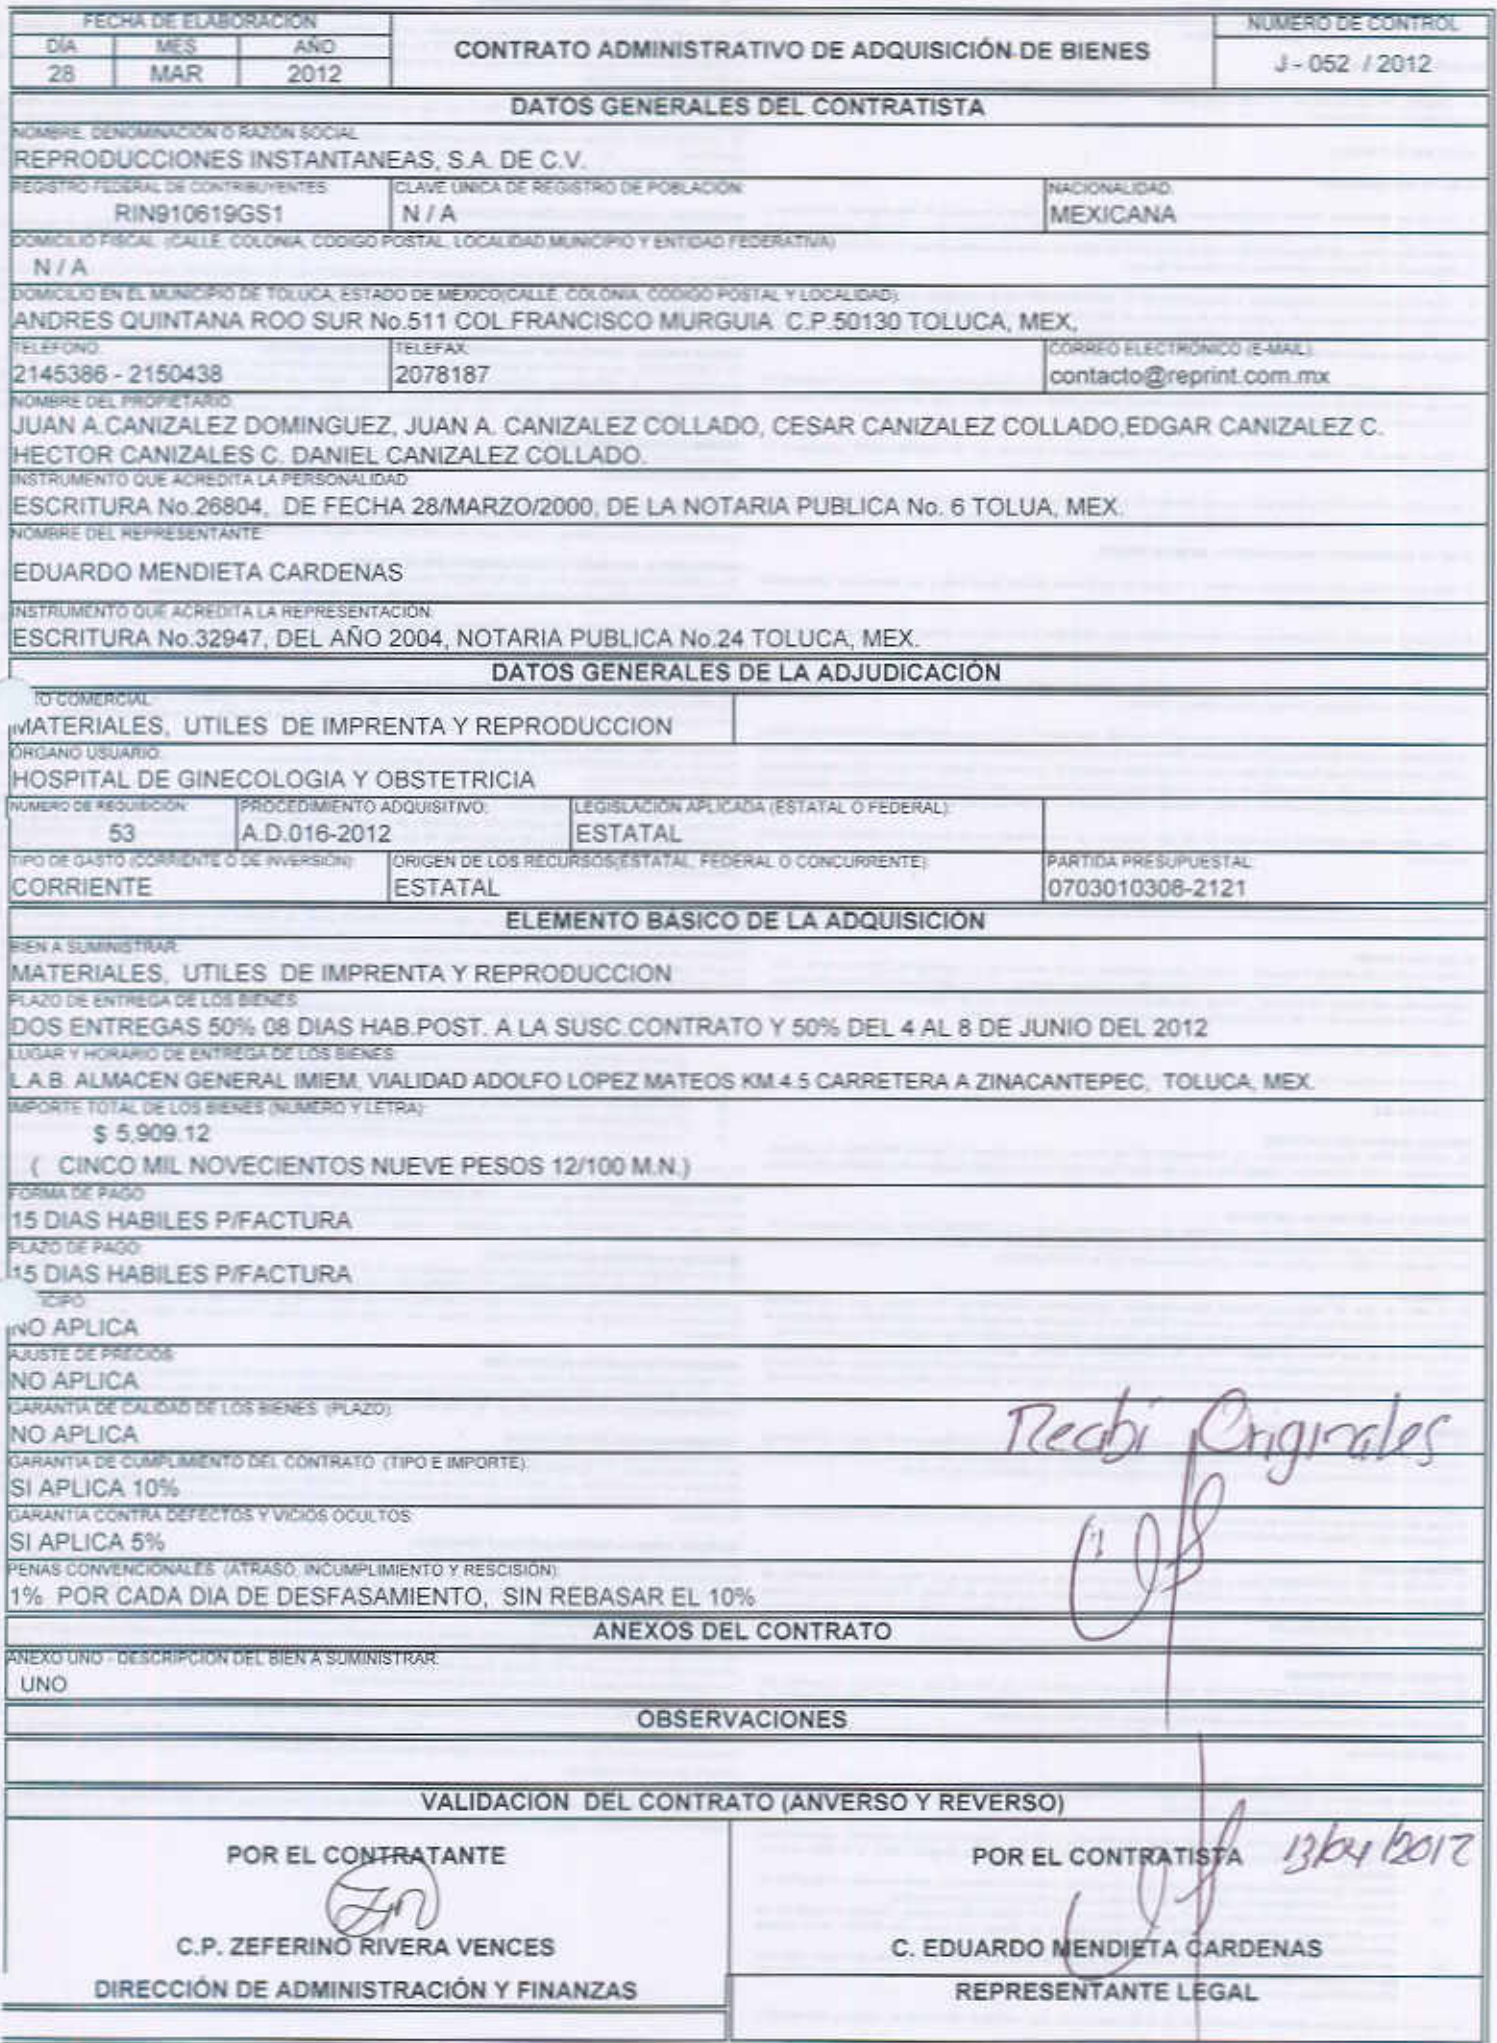 FECHA DE ELABORACIÓN
NÚMERO DE CONTROL
DÍA MES AÑO
CONTRATO ADMINISTRATIVO DE ADQUISICIÓN DE BIENES
28 MAR 2012
J - 052 / 2012
DATOS GENERALES DEL CONTRATISTA
NOMBRE, DENOMINACIÓN O RAZÓN SOCIAL
REPRODUCCIONES INSTANTANEAS, S.A. DE C.V.
REGISTRO FEDERAL DE CONTRIBUYENTES: CLAVE ÚNICA DE REGISTRO DE POBLACIÓN: NACIONALIDAD:
RIN910619GS1 N / A MEXICANA
DOMICILIO FISCAL (CALLE, COLONIA, CODIGO POSTAL, LOCALIDAD,MUNICIPIO Y ENTIDAD FEDERATIVA)
N / A
DOMICILIO EN EL MUNICIPIO DE TOLUCA, ESTADO DE MÉXICO(CALLE, COLONIA, CODIGO POSTAL Y LOCALIDAD)
ANDRES QUINTANA ROO SUR No.511 COL.FRANCISCO MURGUIA C.P.50130 TOLUCA, MEX.
TELEFONO: TELEFAX: CORREO ELECTRÓNICO (E-MAIL):
2145386 - 2150438 2078187 contacto@reprint.com.mx
NOMBRE DEL PROPIETARIO:
JUAN A.CANIZALEZ DOMINGUEZ, JUAN A. CANIZALEZ COLLADO, CESAR CANIZALEZ COLLADO,EDGAR CANIZALEZ C.
HECTOR CANIZALES C. DANIEL CANIZALEZ COLLADO.
INSTRUMENTO QUE ACREDITA LA PERSONALIDAD:
ESCRITURA No.26804, DE FECHA 28/MARZO/2000, DE LA NOTARIA PUBLICA No. 6 TOLUA, MEX.
NOMBRE DEL REPRESENTANTE:
EDUARDO MENDIETA CARDENAS
INSTRUMENTO QUE ACREDITA LA REPRESENTACIÓN:
ESCRITURA No.32947, DEL AÑO 2004, NOTARIA PUBLICA No.24 TOLUCA, MEX.
DATOS GENERALES DE LA ADJUDICACIÓN
COMERCIAL:
MATERIALES, UTILES DE IMPRENTA Y REPRODUCCION
ÓRGANO USUARIO:
HOSPITAL DE GINECOLOGIA Y OBSTETRICIA
NUMERO DE REQUISICIÓN: PROCEDIMIENTO ADQUISITIVO: LEGISLACIÓN APLICADA (ESTATAL O FEDERAL):
53 A.D.016-2012 ESTATAL
TIPO DE GASTO (CORRIENTE O DE INVERSIÓN): ORIGEN DE LOS RECURSOS(ESTATAL, FEDERAL O CONCURRENTE): PARTIDA PRESUPUESTAL:
CORRIENTE ESTATAL 0703010308-2121
ELEMENTO BÁSICO DE LA ADQUISICIÓN
BIEN A SUMINISTRAR:
MATERIALES, UTILES DE IMPRENTA Y REPRODUCCION
PLAZO DE ENTREGA DE LOS BIENES:
DOS ENTREGAS 50% 08 DIAS HAB.POST. A LA SUSC.CONTRATO Y 50% DEL 4 AL 8 DE JUNIO DEL 2012
LUGAR Y HORARIO DE ENTREGA DE LOS BIENES:
L.A.B. ALMACEN GENERAL IMIEM, VIALIDAD ADOLFO LOPEZ MATEOS KM.4.5 CARRETERA A ZINACANTEPEC, TOLUCA, MEX.
IMPORTE TOTAL DE LOS BIENES (NUMERO Y LETRA):
$ 5,909.12
( CINCO MIL NOVECIENTOS NUEVE PESOS 12/100 M.N.)
FORMA DE PAGO:
15 DIAS HABILES P/FACTURA
PLAZO DE PAGO:
15 DIAS HABILES P/FACTURA
NO APLICA
AJUSTE DE PRECIOS:
NO APLICA
GARANTÍA DE CALIDAD DE LOS BIENES (PLAZO):
NO APLICA
Recibi Originales
GARANTÍA DE CUMPLIMIENTO DEL CONTRATO (TIPO E IMPORTE):
SI APLICA 10%
GARANTÍA CONTRA DEFECTOS Y VICIOS OCULTOS:
SI APLICA 5%
PENAS CONVENCIONALES (ATRASO, INCUMPLIMIENTO Y RESCISIÓN):
1% POR CADA DIA DE DESFASAMIENTO, SIN REBASAR EL 10%
ANEXOS DEL CONTRATO
ANEXO UNO - DESCRIPCIÓN DEL BIEN A SUMINISTRAR:
UNO
OBSERVACIONES
VALIDACIÓN DEL CONTRATO (ANVERSO Y REVERSO)
POR EL CONTRATANTE POR EL CONTRATISTA 13/04/2012
C.P. ZEFERINO RIVERA VENCES C. EDUARDO MENDIETA CARDENAS
DIRECCIÓN DE ADMINISTRACIÓN Y FINANZAS REPRESENTANTE LEGAL